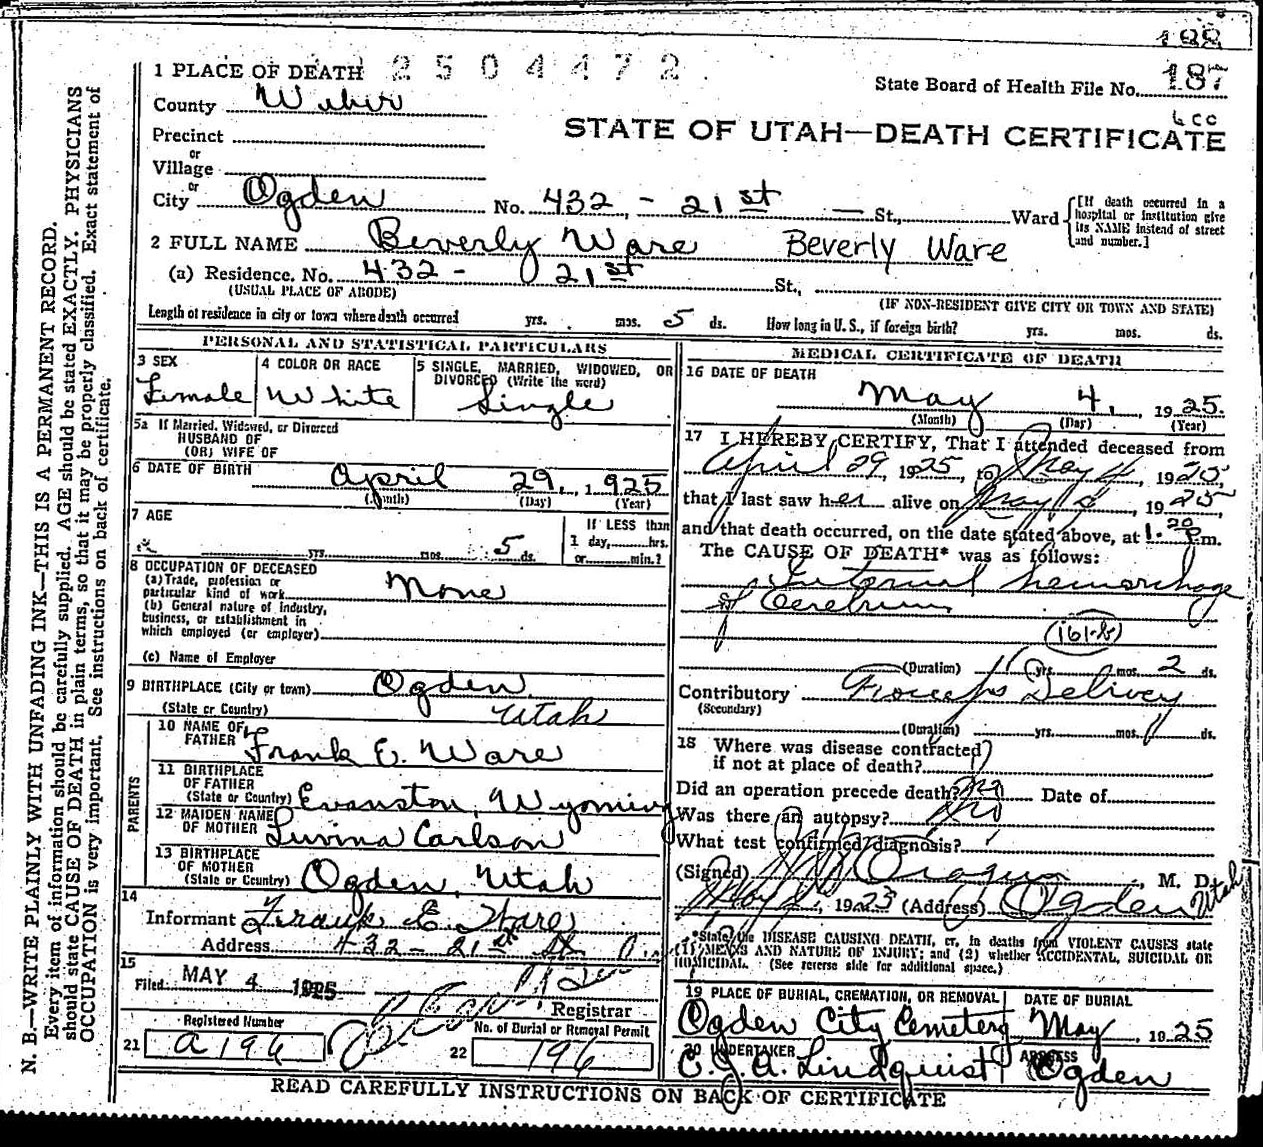 188
2504472
1 PLACE OF DEATH
State Board of Health File No. 187
County Weber
STATE OF UTAH—DEATH CERTIFICATE
Precinct
or
Village
or
City Ogden No. 432 - 21st — St., Ward
[If death occurred in a hospital or institution give its NAME instead of street and number.]
2 FULL NAME Beverly Ware Beverly Ware
(a) Residence. No. 432 - 21st St.,
(USUAL PLACE OF ABODE) (IF NON-RESIDENT GIVE CITY OR TOWN AND STATE)
Length of residence in city or town where death occurred yrs. mos. 5 ds. How long in U. S., if foreign birth? yrs. mos. ds.
PERSONAL AND STATISTICAL PARTICULARS
3 SEX
Female
4 COLOR OR RACE
White
5 SINGLE, MARRIED, WIDOWED, OR DIVORCED (Write the word)
Single
5a If Married, Widowed, or Divorced
HUSBAND OF
(OR) WIFE OF
6 DATE OF BIRTH April 29, 1925
(Month) (Day) (Year)
7 AGE
yrs. mos. 5 ds.
If LESS than
1 day, hrs.
or min.?
8 OCCUPATION OF DECEASED
(a) Trade, profession or
particular kind of work None
(b) General nature of industry,
business, or establishment in
which employed (or employer)
(c) Name of Employer
9 BIRTHPLACE (City or town) Ogden
(State or Country) Utah
PARENTS
10 NAME OF
FATHER Frank E. Ware
11 BIRTHPLACE
OF FATHER
(State or Country) Evanston, Wyoming
12 MAIDEN NAME
OF MOTHER Luvina Carlson
13 BIRTHPLACE
OF MOTHER
(State or Country) Ogden, Utah
14
Informant Frank E. Ware
Address 432-21st St
15
Filed MAY 4 1925
Registrar
Registered Number
21 a 196
No. of Burial or Removal Permit
22 196
MEDICAL CERTIFICATE OF DEATH
16 DATE OF DEATH
May 4, 1925.
(Month) (Day) (Year)
17 I HEREBY CERTIFY, That I attended deceased from
April 29, 1925, to May 4, 1925,
that I last saw her alive on May 4, 1925,
and that death occurred, on the date stated above, at 1.20 p.m.
The CAUSE OF DEATH* was as follows:
Internal hemorrhage
of Cerebrum
(Duration) yrs. mos. 2 ds.
Contributory Forceps Delivery
(Secondary)
(Duration) yrs. mos. ds.
18 Where was disease contracted
if not at place of death?
Did an operation precede death? no Date of
Was there an autopsy? no
What test confirmed diagnosis?
(Signed) , M. D.
, 1923 (Address) Ogden Utah
*State the DISEASE CAUSING DEATH, or, in deaths from VIOLENT CAUSES state
(1) MEANS AND NATURE OF INJURY; and (2) whether ACCIDENTAL, SUICIDAL OR
HOMICIDAL. (See reverse side for additional space.)
19 PLACE OF BURIAL, CREMATION, OR REMOVAL DATE OF BURIAL
Ogden City Cemetery May , 1925
20 UNDERTAKER ADDRESS
C. J. A. Lindquist Ogden
READ CAREFULLY INSTRUCTIONS ON BACK OF CERTIFICATE
N. B.—WRITE PLAINLY WITH UNFADING INK—THIS IS A PERMANENT RECORD.
Every item of information should be carefully supplied. AGE should be stated EXACTLY. PHYSICIANS
should state CAUSE OF DEATH in plain terms, so that it may be properly classified. Exact statement of
OCCUPATION is very important. See instructions on back of certificate.